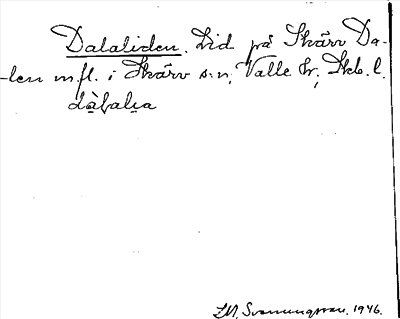 Dalaliden. Lid på Skärv Da-
-len m.fl. i Skärv s:n, Valle hr, Skb. l.
dàlalıa
I.M. Svanungsson. 1946.